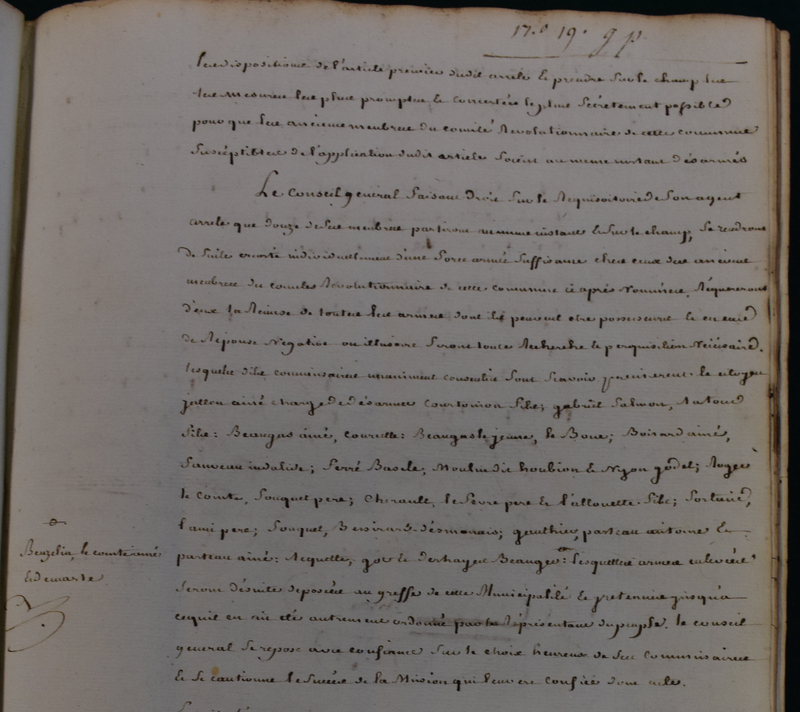 17.e 19. g p
les dispositions de l'article premier dudit arrêté & prendre sur le champ
les mesures les plus promptes & concertées le plus secrètement possibles
pour que les anciens membres du comité Révolutionnaire de cette commune
susceptibles de l'application dudit article soient au même instant désarmés
Le Conseil général faisant droit sur le Requisitoire de son agent
arrête que douze de ses membres partiront au même instant & sur le champ, se rendront
de suite escorté individuellement d'une force armée suffisante chez ceux des anciens
membres du comité Révolutionnaire de cette commune ci après nommées, Requereront
d'eux la Remise de toutes les armes dont ils peuvent être possesseurs & en cas
de Réponse Négative ou illusoire feront toutes Recherche & perquisition Nécessaires.
lesquels dits commissaires unaniment consentis sont scavoir le citoyen
jallon ainé charge de désarmer Courtoiron fils; gabriel Salmon,
fils: Beaugas ainé, Beaugas le jeune, le Boue; Boisard ainé,
invalide; ferré Basile, Moulin dit houbion & godet; Roger
le Comte, fouquet pere; Cherault, le febvre pere & l'allouette fils;
l'ami pere; fouquet, désmonais; gauthier, parteau antoine &
parteau ainé: & Beauger: lesquelles armes enlevées
seront désuite déposées au greffe de cette Municipalité & y retenues jusqu'à
cequil en ait été autrement ordonné par le Représentant du peuple. le conseil
general se repose avec confiance sur le choix heureux de ses commissaires
& se cautionne le succès de la Mission qui leur est confiée dont acte.
Beuzelin, le comte